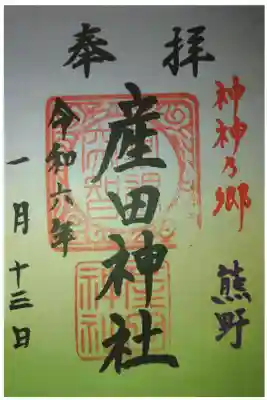 奉拝
神神乃郷
熊野
産田神社
令和六年
一月十三日